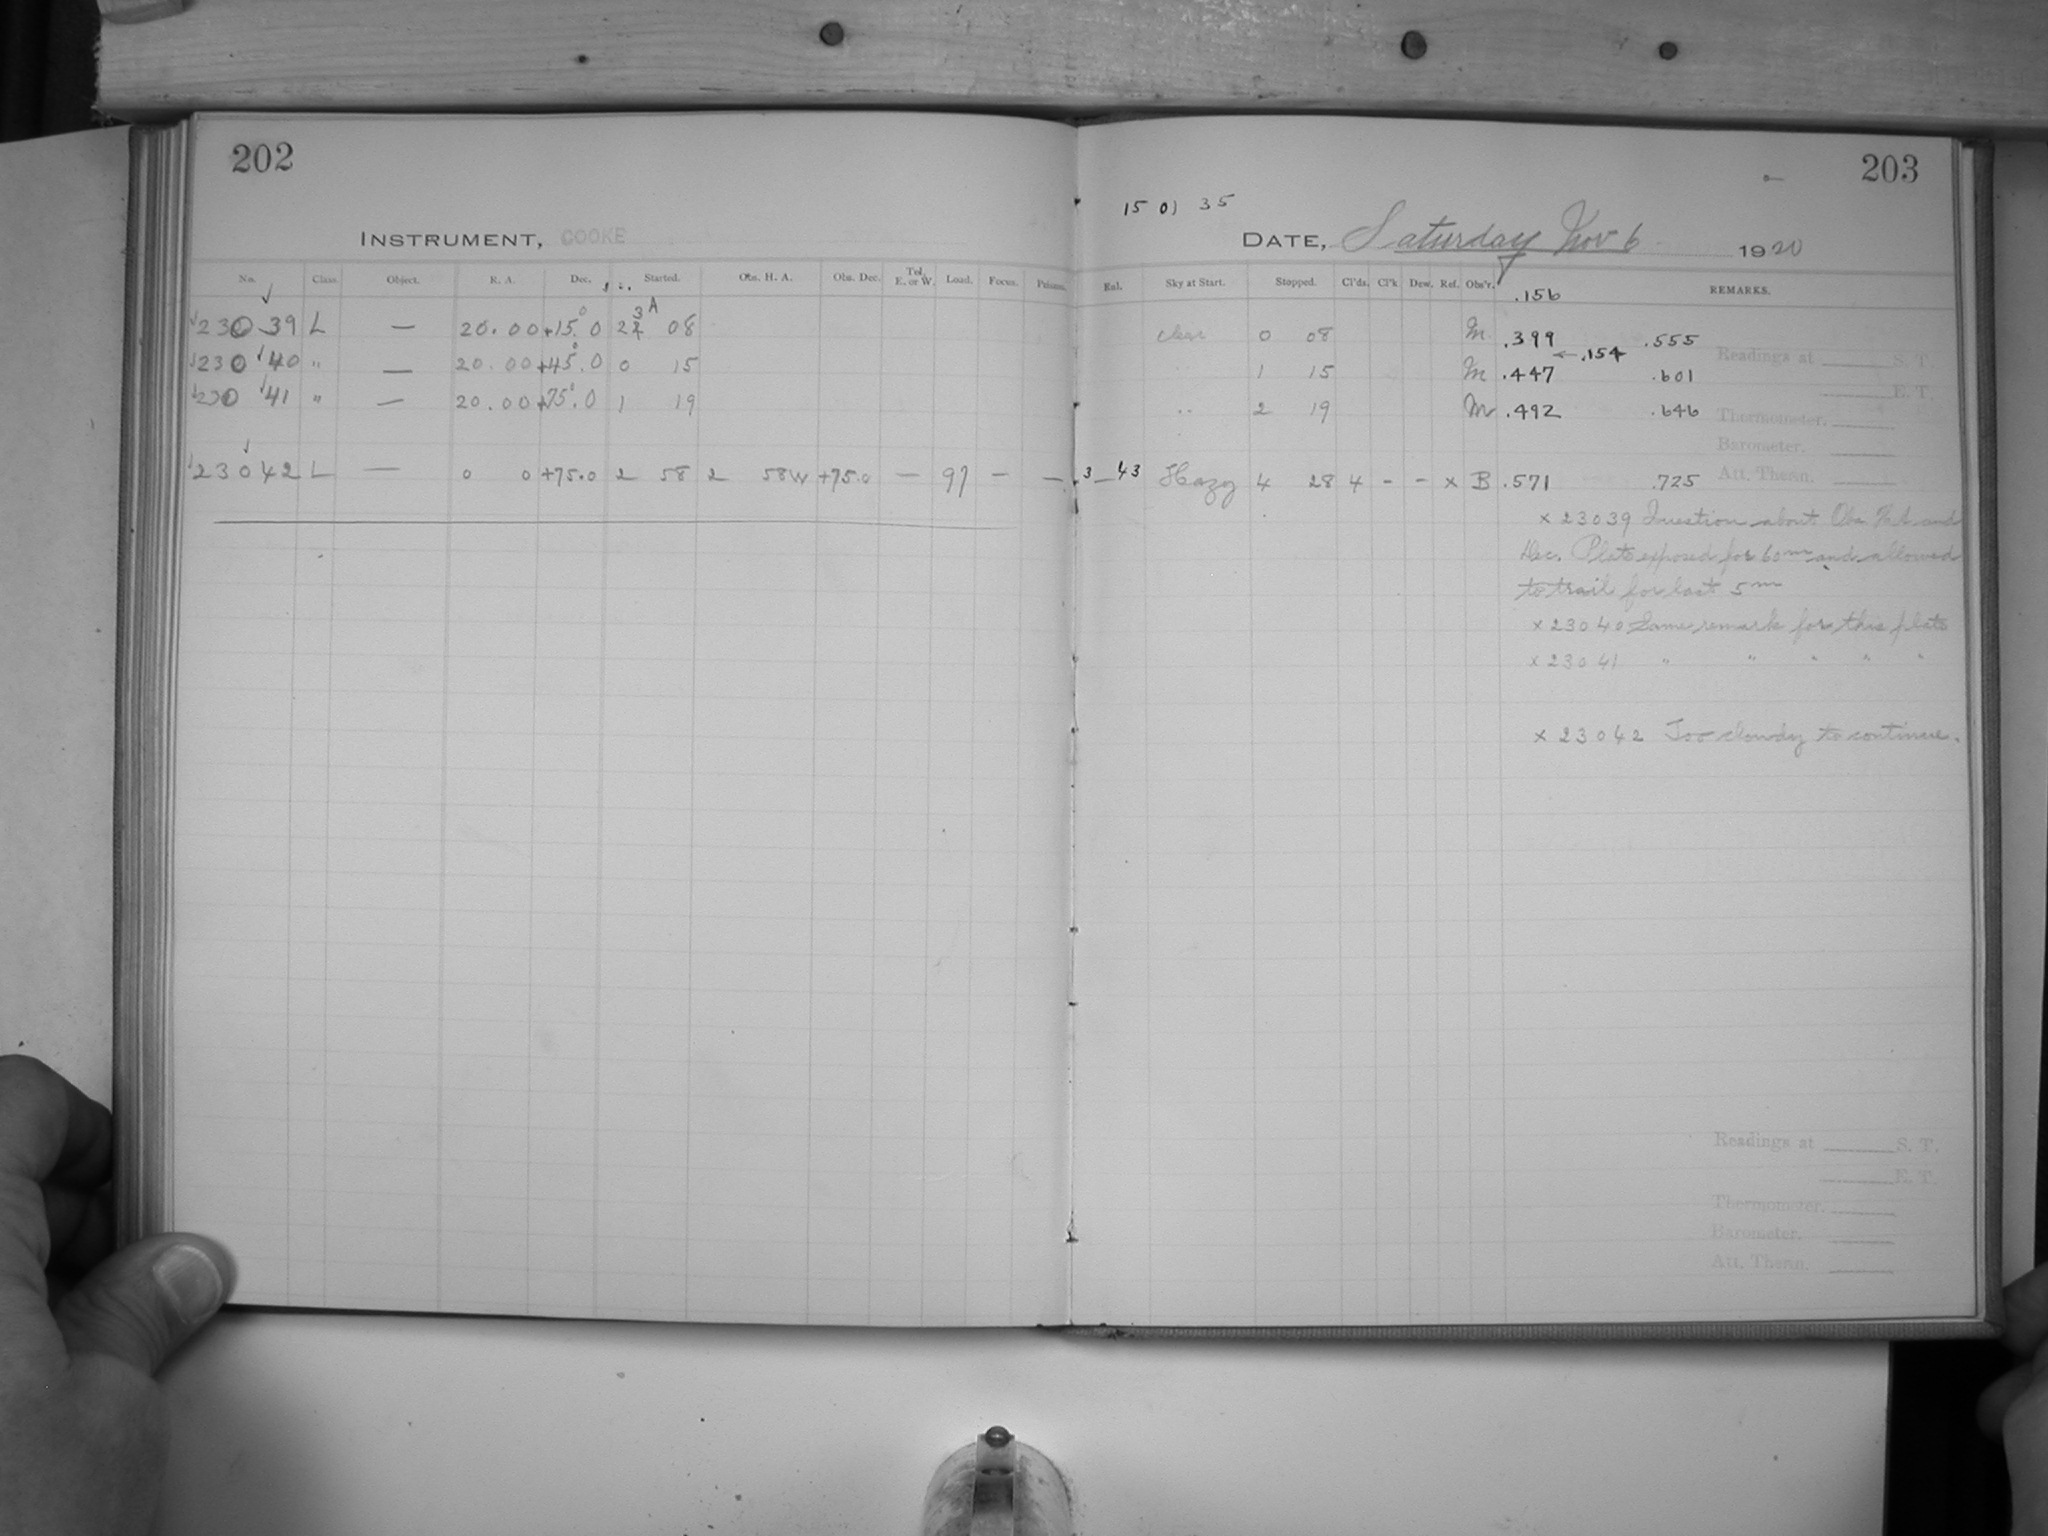 202
INSTRUMENT, COOKE
No. Class. Object. R. A. Dec. Started. Obs. H. A. Obs. Dec. Tel. E. or W. Load. Focus. Prisms.
23039 L — 20.00 +15.0 23 08
23040 " — 20.00 +45.0 0 15
23041 " — 20.00 +75.0 1 19
23042 L — 0 0 +75.0 2 58 2 58W +75.0 — 97 — —
203
15 01 35
DATE, Saturday Nov 6 1920
Rul. Sky at Start. Stopped. Cl'ds. Cl'k. Dew. Ref. Obs'r. REMARKS.
.156
clear 0 08 M .399 .555
← .154
" 1 15 M .447 .601
" 2 19 M .492 .646
3 43 Hazy 4 28 4 - - x B .571 .725
Readings at S. T.
E. T.
Thermometer.
Barometer.
Att. Therm.
x 23039 Question about Obs HA and
Dec. Plate exposed for 60m and allowed
to trail for last 5m
x 23040 Same remark for this plate
x 23041 " " " " "
x 23042 Too cloudy to continue.
Readings at S. T.
E. T.
Thermometer.
Barometer.
Att. Therm.